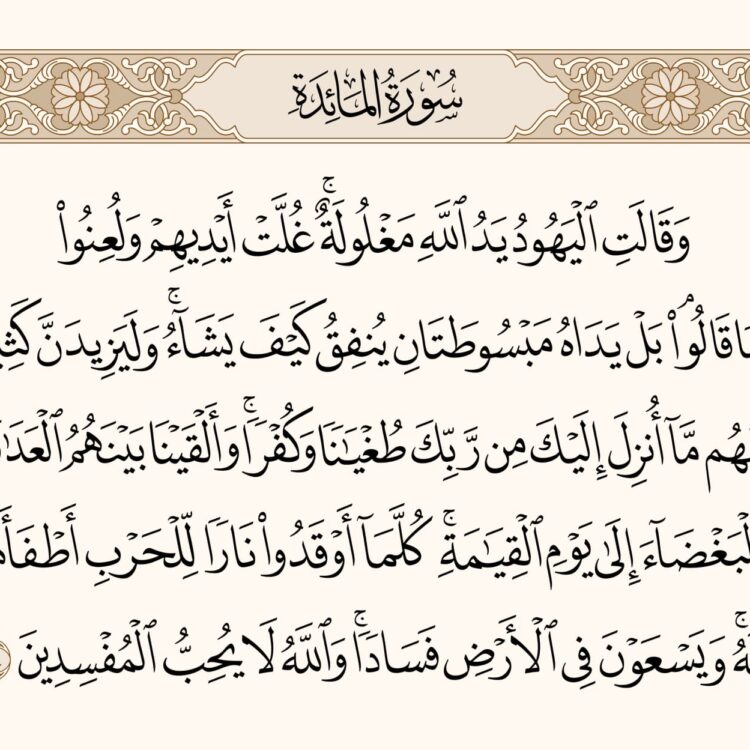 سُورَةُ المَائِدَةِ
وَقَالَتِ ٱلۡيَهُودُ يَدُ ٱللَّهِ مَغۡلُولَةٌۚ غُلَّتۡ أَيۡدِيهِمۡ وَلُعِنُواْ
قَالُواْۘ بَلۡ يَدَاهُ مَبۡسُوطَتَانِ يُنفِقُ كَيۡفَ يَشَآءُۚ وَلَيَزِيدَنَّ
مَّآ أُنزِلَ إِلَيۡكَ مِن رَّبِّكَ طُغۡيَٰنٗا وَكُفۡرٗاۚ وَأَلۡقَيۡنَا بَيۡنَهُمُ
إِلَىٰ يَوۡمِ ٱلۡقِيَٰمَةِۚ كُلَّمَآ أَوۡقَدُواْ نَارٗا لِّلۡحَرۡبِ
وَيَسۡعَوۡنَ فِي ٱلۡأَرۡضِ فَسَادٗاۚ وَٱللَّهُ لَا يُحِبُّ ٱلۡمُفۡسِدِينَ